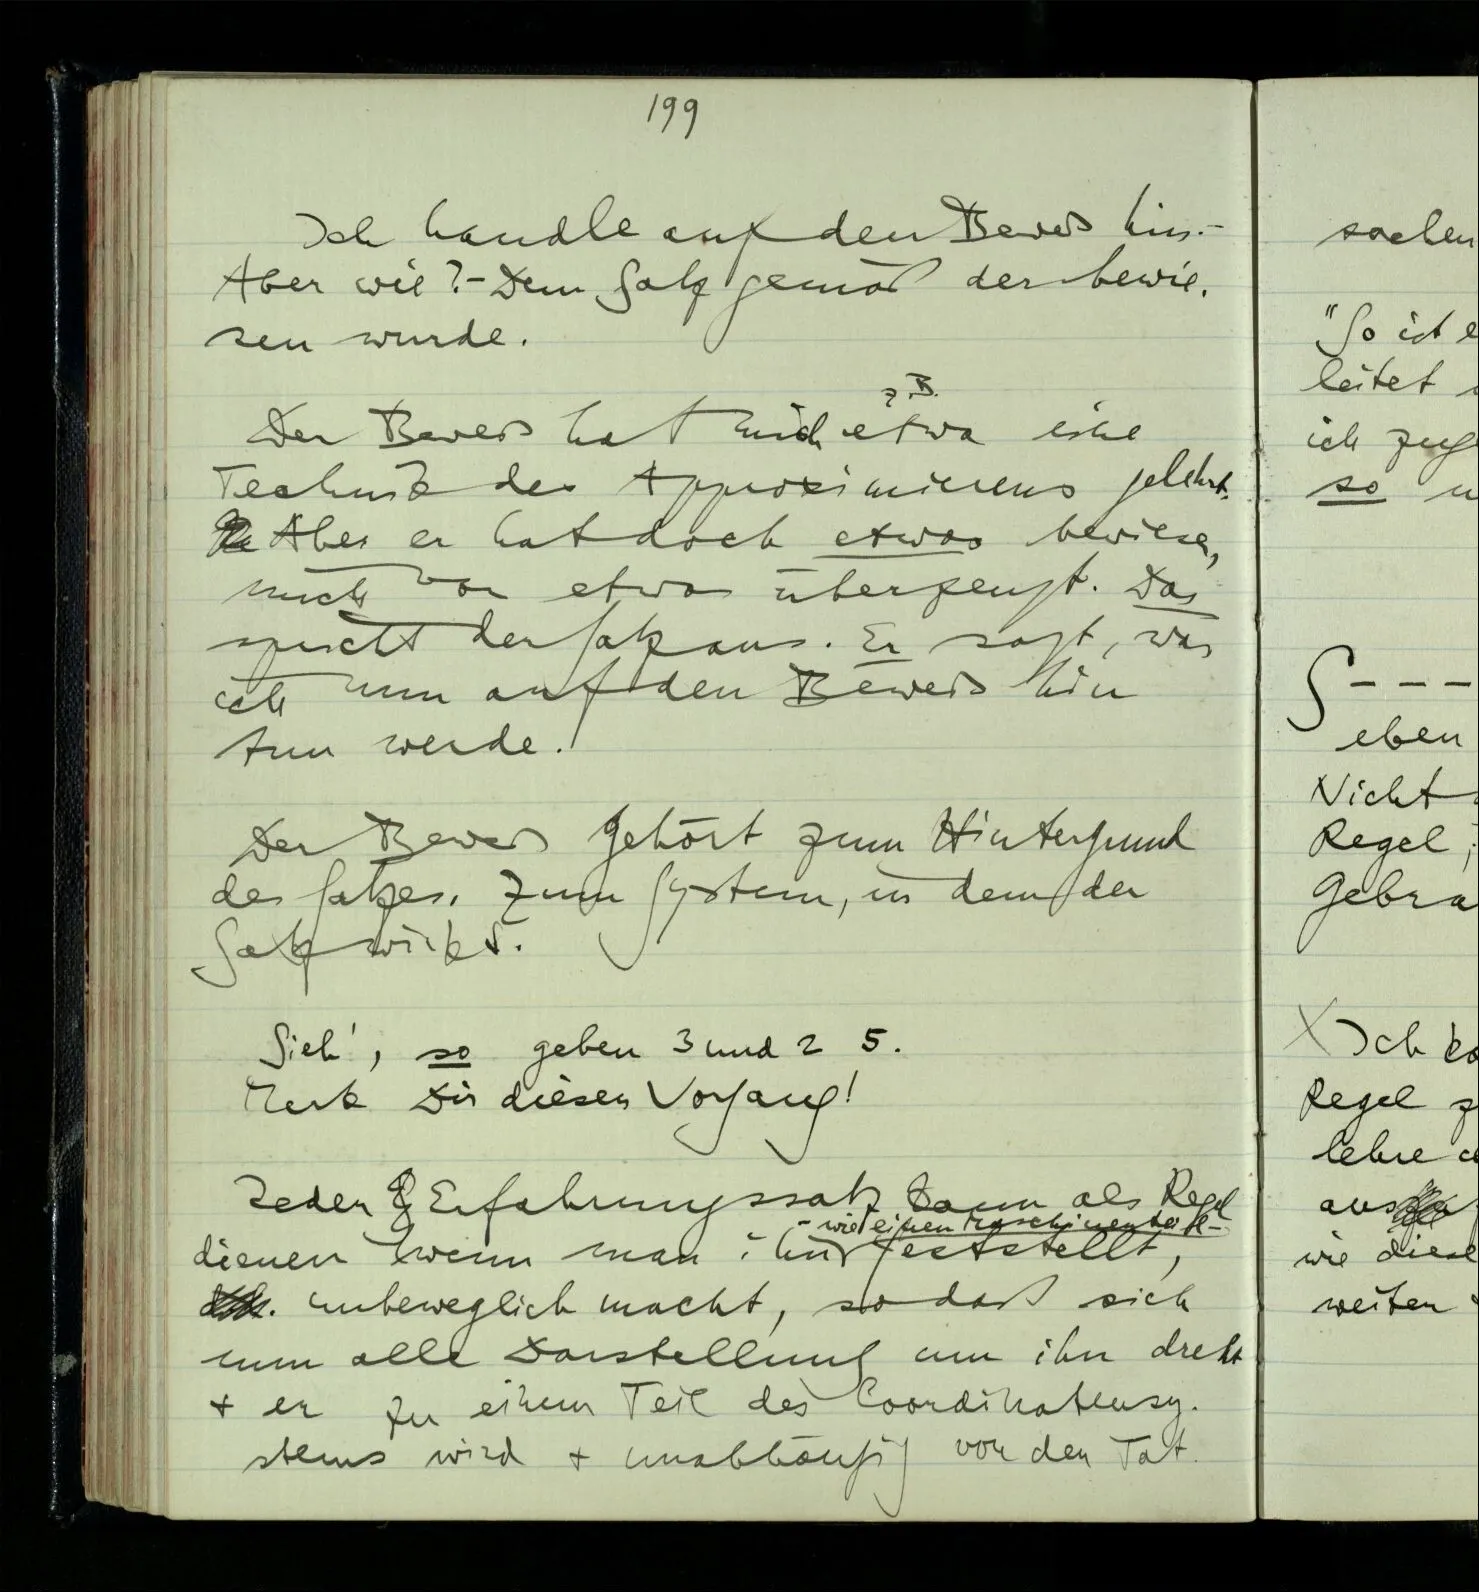 199
Ich handle auf den Beweis hin. –
Aber wie? – Dem Satz gemäß der bewie-
sen wurde.
z.B.
Der Beweis hat mich etwa eine
Technik des Approximierens gelehrt.
Aber er hat doch etwas bewiesen,
mich von etwas überzeugt. Das
spricht der Satz aus. Er sagt, was
ich nun auf den Beweis hin
tun werde.
Der Beweis gehört zum Hintergrund
des Satzes. Zum System, in dem der
Satz wirkt.
Sieh', so geben 3 und 2 5.
Merk Dir diesen Vorgang!
Jeder Erfahrungssatz kann als Regel
– wie einen Maschinenteil –
dienen wenn man ihn feststellt,
unbeweglich macht, sodaß sich
nun alle Darstellung um ihn dreht
+ er zu einem Teil des Coordinatensy-
stems wird + unabhängig von den Tat-
sachen
"So ist e
leitet
ich zug
so
∫ – – –
eben
Nicht
Regel,
Gebra
Ich ko
Regel
lehre
aus
wie diese
weiter